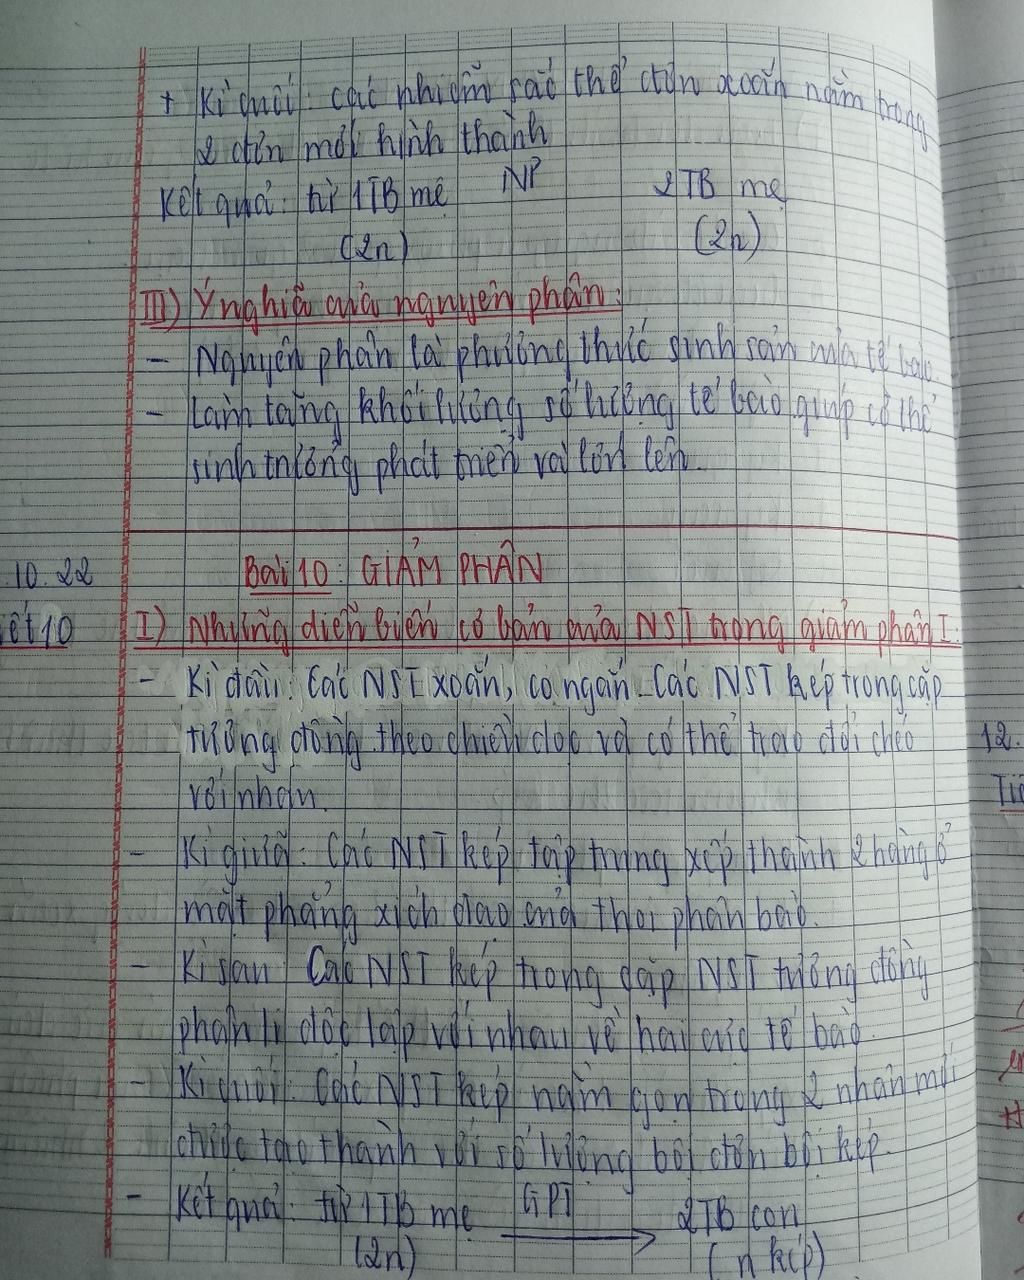 + Kì cuối: các nhiễm sắc thể đơn xoắn nằm trong
2 đơn mới hình thành
Kết quả: từ 1TB mẹ NP 2TB mẹ
(2n) (2n)
III) Ý nghĩa của nguyên phân:
- Nguyên phân là phương thức sinh sản của tế bào.
- Làm tăng khối lượng số lượng tế bào giúp cơ thể
sinh trưởng phát triển và lớn lên.
10.22 Bài 10: GIẢM PHÂN
iết 10 I) Những diễn biến cơ bản của NST trong giảm phân I:
- Kì đầu: Các NST xoắn, co ngắn. Các NST kép trong cặp
tương đồng theo chiều dọc và có thể trao đổi chéo
với nhau.
- Kì giữa: Các NST kép tập trung xếp thành 2 hàng ở
mặt phẳng xích đạo của thoi phân bào.
- Kì sau: Các NST kép trong cặp NST tương đồng
phân li độc lập với nhau về hai cực tế bào.
- Kì cuối: Các NST kép nằm gọn trong 2 nhân mới
được tạo thành với số lượng bội đơn bội kép.
- Kết quả: từ 1TB mẹ GPI 2TB con
(2n) (n kép)
12.
Tiế